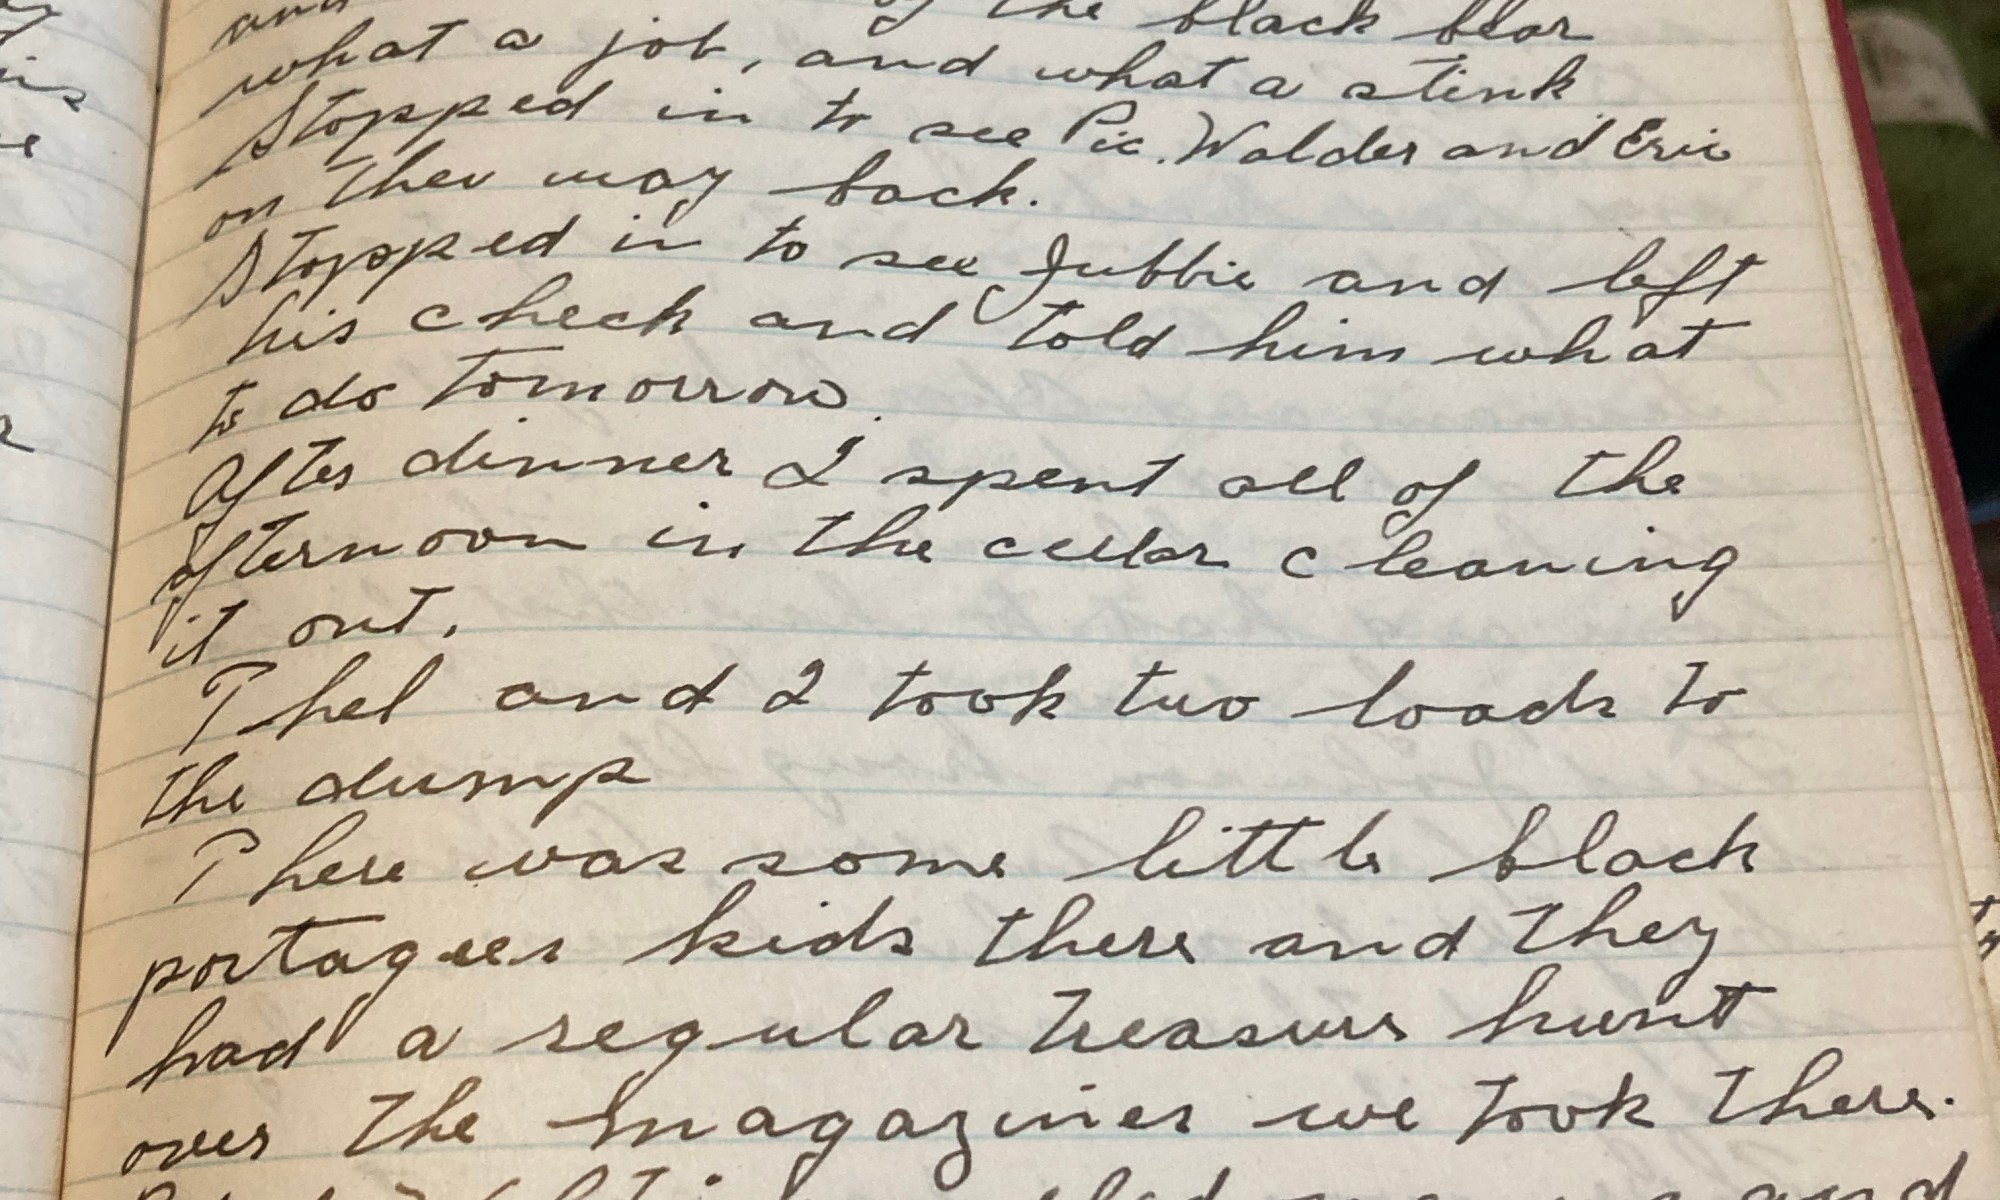 and of the black bear
what a job, and what a stink
Stopped in to see Pic. Walder and Eric
on ther way back.
Stopped in to see Jubbie and left
his check and told him what
to do tomorrow.
After dinner I spent all of the
afternoon in the celler cleaning
it out.
Thel and I took two loads to
the dump
There was some little black
portagees kids there and they
had a regular treasure hunt
over the magazines we took there.
and